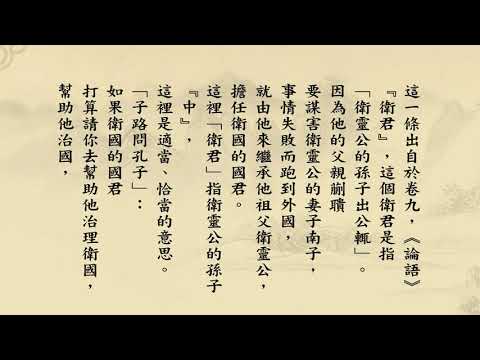 這一條出自於卷九，《論語》
『衛君』，這個衛君是指
「衛靈公的孫子出公輒」。
因為他的父親蒯聵
要謀害衛靈公的妻子南子，
事情失敗而跑到外國，
就由他來繼承他祖父衛靈公，
擔任衛國的國君。
這裡「衛君」指衛靈公的孫子
『中』，
這裡是適當、恰當的意思。
「子路問孔子」：
如果衛國的國君
打算請你去幫助他治理衛國，
幫助他治國，